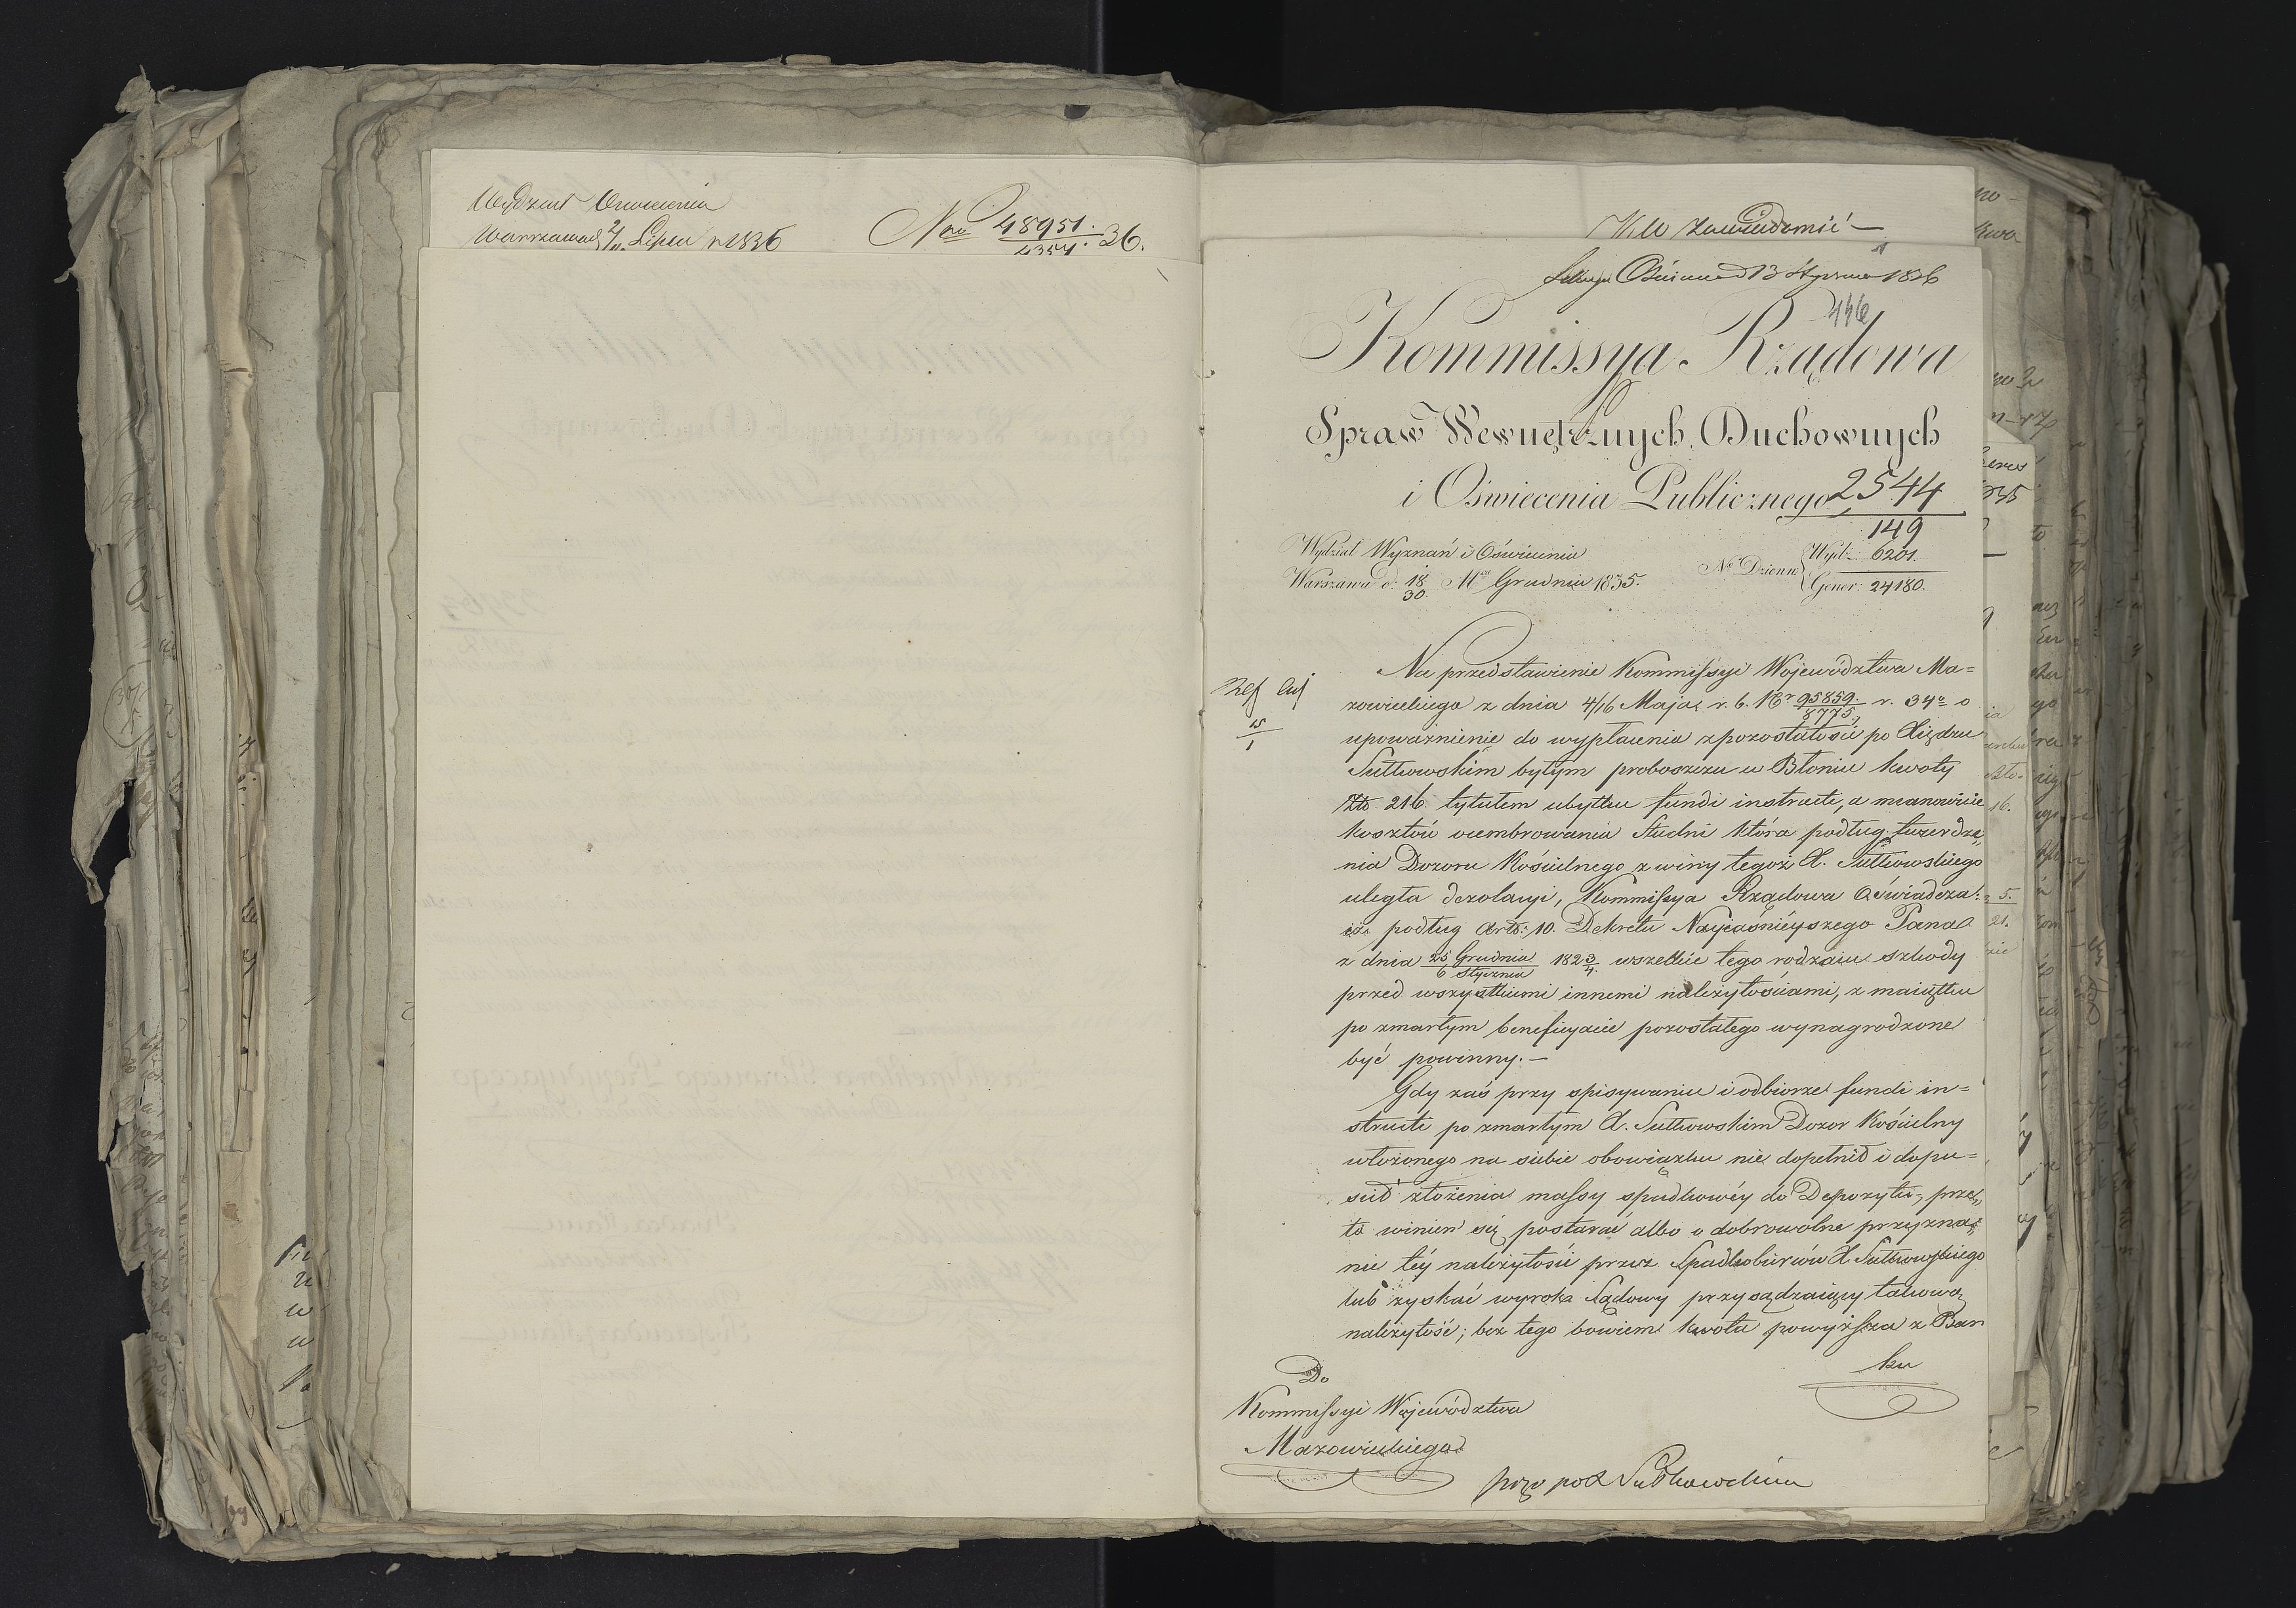 Wydział Oświecenia
Warszawa d. Lipca r. 1836
Nro 48951. 36.
4354.
zawiadomić —
Sekcya d 13 Stycznia 1836
446
Kommissya Rządowa
Spraw Wewnętrznych, Duchownych
i Oświecenia Publicznego
2544
149
Wydział Wyznań i Oświecenia
Warszawa d: 18/30 Mca Grudnia 1835.
Nr Dzienn: Wydz: 6201.
Gener: 24180.
Na przedstawienie Kommissyi Województwa Ma=
zowieckiego z dnia 4/16 Maja r. b. Nr 95859/8775 r. 34o o
upoważnienie do wypłacenia z pozostałości po Xiędzu
Sutkowskim byłym proboszczu w Błoniu kwoty
Złt. 216 tytułem ubytku fundi instructi, a mianowicie
kosztów ocembrowania Studni która podług twierdze„
nia Dozoru Kościelnego z winy tegoż X. Sutkowskiego
uległa dezolacyi, Kommissya Rządowa Oświadcza:
iż podług Artt: 10. Dekretu Nayjaśnieyszego Pana
z dnia 25 Grudnia/6 Stycznia 1823/4. wszelkie tego rodzaiu szkody
przed wszystkiemi innemi należytościami, z maiątku
po zmarłym beneficyacie pozostałego wynagrodzone
być powinny. —
Gdy zaś przy spisywaniu i odbiorze fundi in=
structi po zmarłym X. Sutkowskim Dozor Kościelny
włożonego na siebie obowiązku nie dopełnił i dopu=
ścił złożenia massy spadkowéy do Depozytu, prze„
to winien się postarać albo o dobrowolne przyzna„
nie téy należytości przez Spadkobierców X. Sutkowskiego
lub zyskać wyrok Sądowy przysądzaiący takową
należytość; bez tego bowiem kwota powyższa z Ban
ku
Do
Kommissyi Województwa
Mazowieckiego